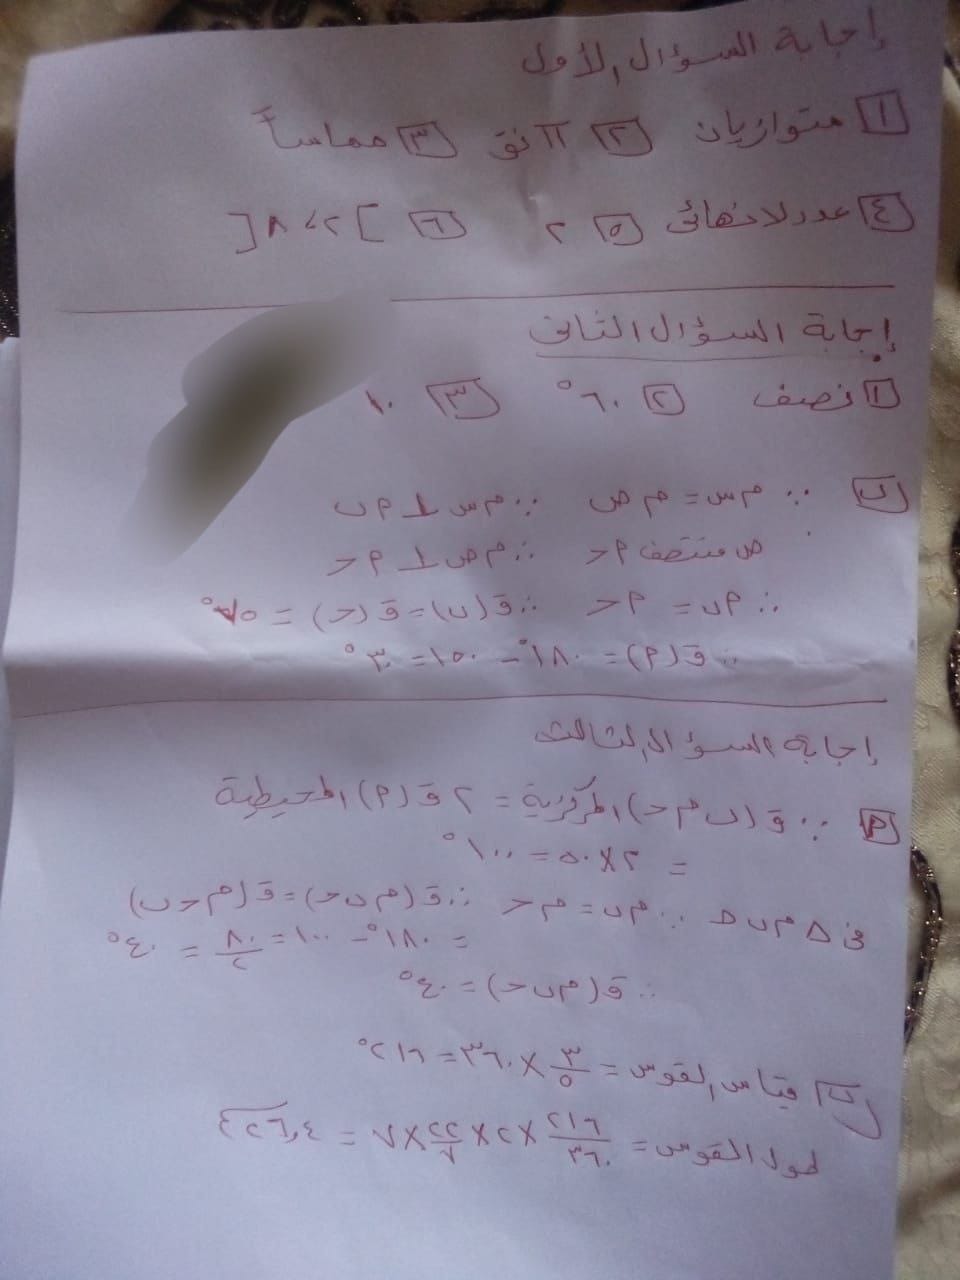 إجابة السؤال الأول
١ متوازيان ٢ π نق ٣ مماساً
٤ عدد لانهائى ٥ ٢ ٦ ]٢، ٨[
إجابة السؤال الثانى
١ نصف ٢ ٦٠° ٣ ١٠
ب ∵ م س = م ص ∵ م س ⊥ م ب
ص منتصف م ح ∴ م ص ⊥ م ح
∴ م ب = م ح ∴ ق (ب) = ق (ح) = ٧٥°
∴ ق (م) = ١٨٠° - ١٥٠ = ٣٠°
إجابة السؤال الثالث
م ∵ ق (ب م ح) المركزية = ٢ ق (م) المحيطية
= ٢ × ٥٠ = ١٠٠°
فى Δ م ب ح ∵ م ب = م ح ∴ ق (م ب ح) = ق (م ح ب)
= ١٨٠° - ١٠٠ = ٨٠/٢ = ٤٠°
∴ ق (م ب ح) = ٤٠°
ب قياس القوس = ٣/٥ × ٣٦٠ = ٢١٦°
طول القوس = ٢١٦/٣٦٠ × ٢ × ٢٢/٧ × ٧ = ٢٦,٤